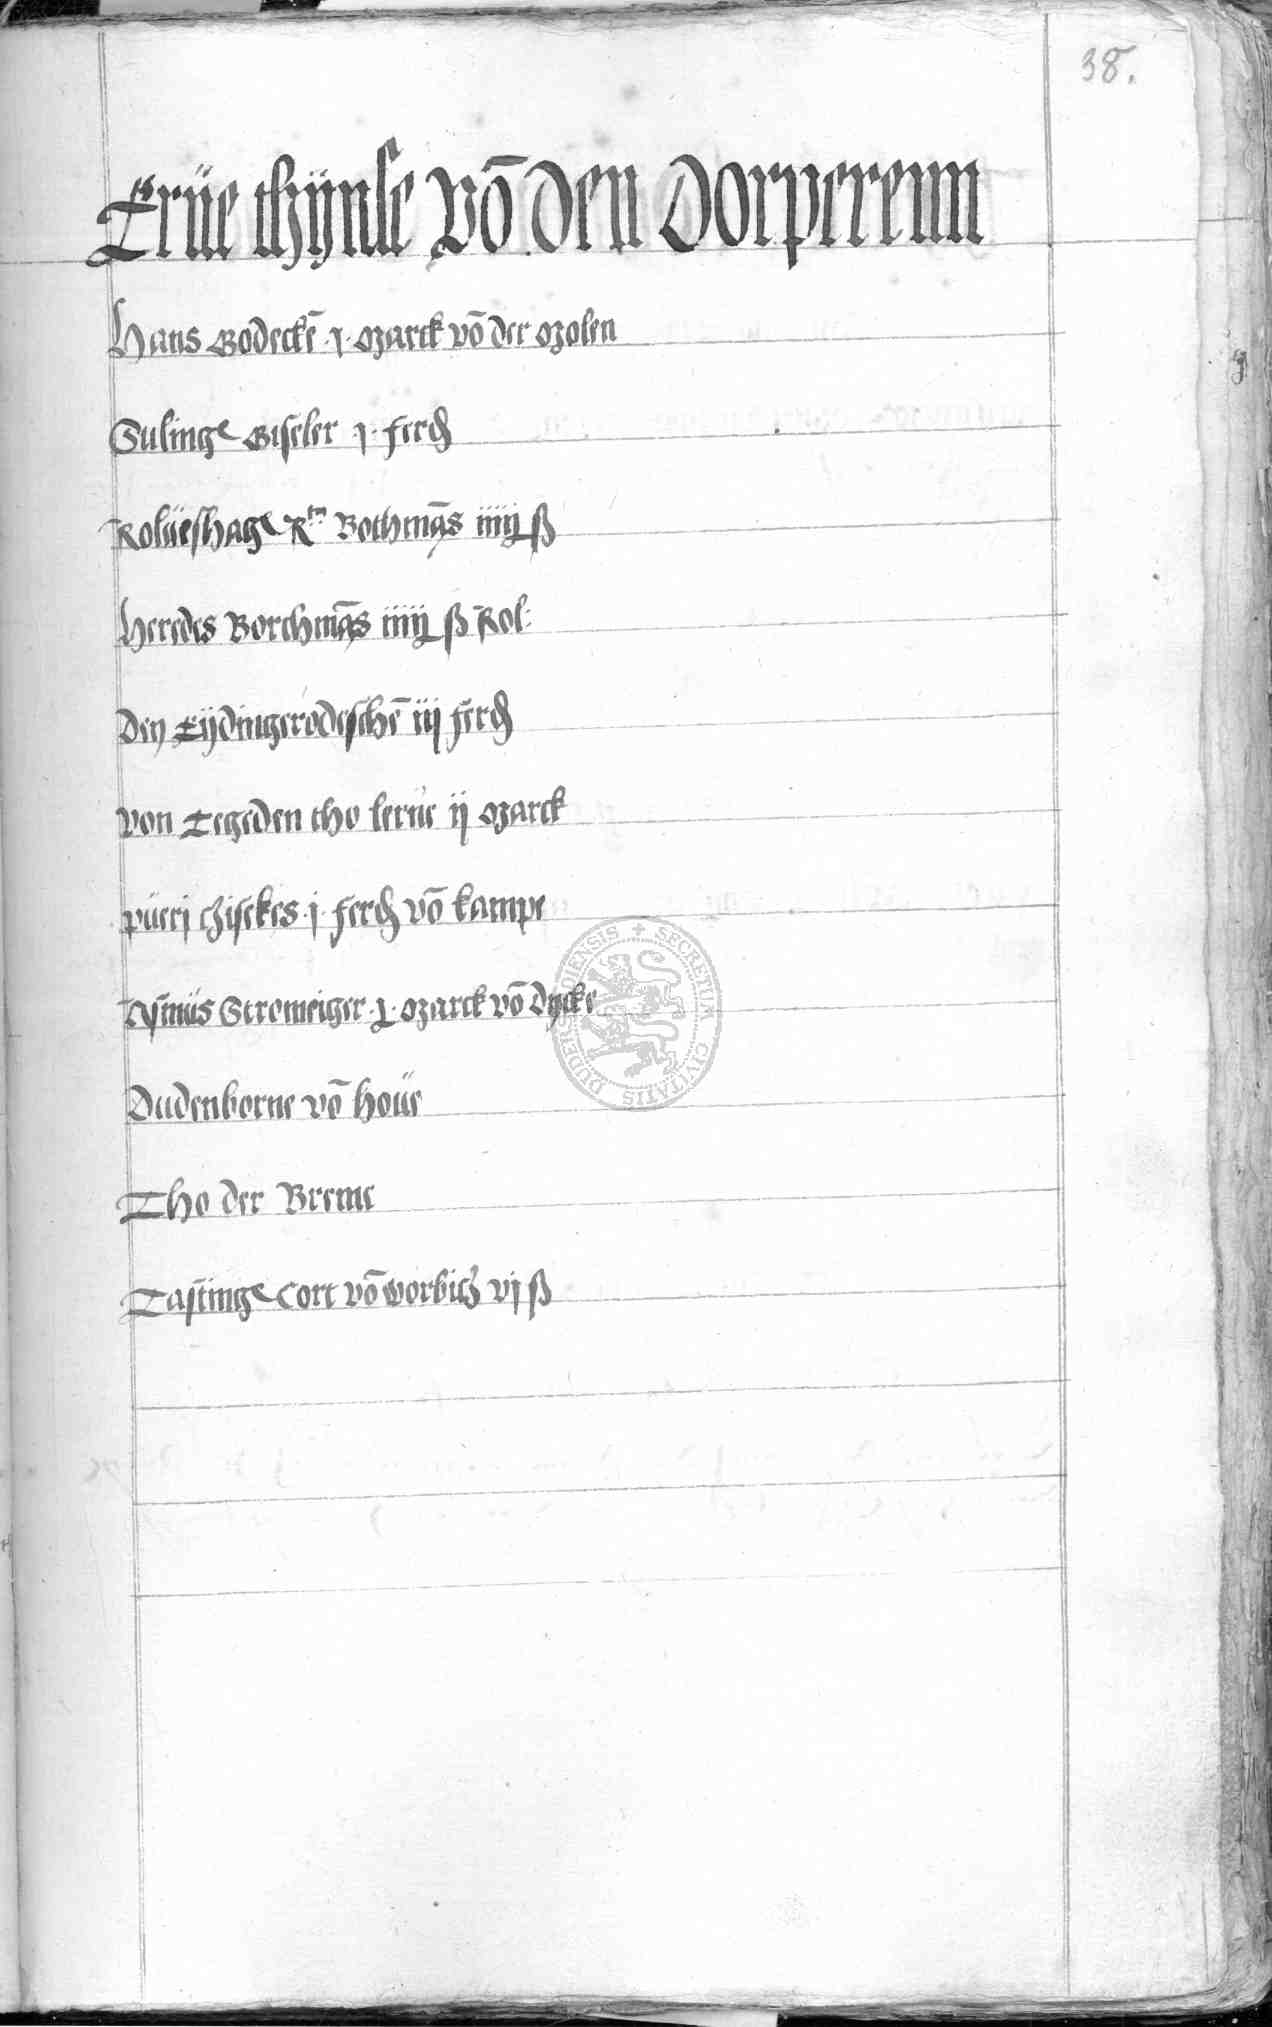 38.
Erüe thÿnse vō den Dorperenn
Hans Bodeckē .j. Marck vō der Molen
Sulinge Giseler .j. ferd
Rolüeshage Bothmās iiij ß
Heredes Borchmās iiij ß Rol:
Den Eÿdingerodeschē iij ferd
von Tegeden tho lerne ij Marck
püeri Zisekes .j. ferd vō kampe
Asmüs Stromeiger .j. Marck vō Dycke
Dudenborne vō hoüe
Tho der Breme
Tastinge Cort vō worbicz vj ß
SECRETUM CIVITATIS DUDERSTADIENSIS